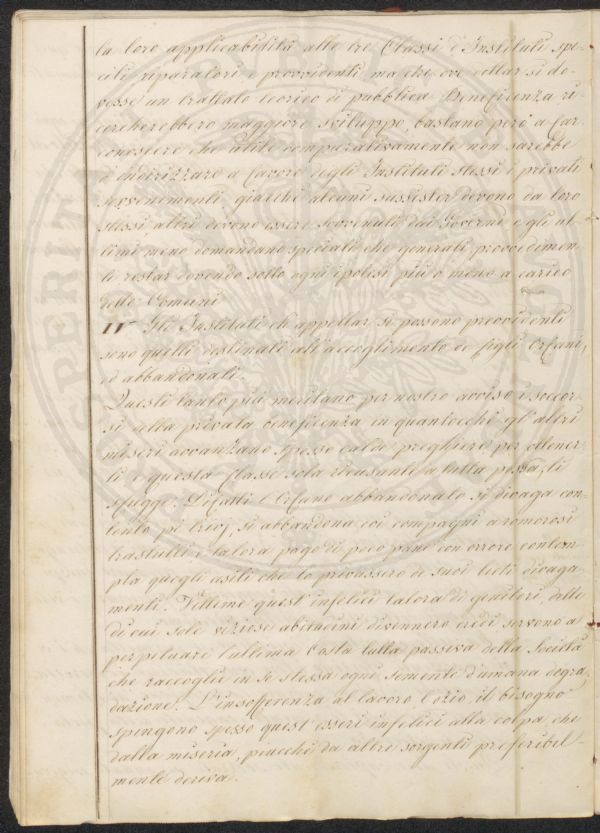 la loro applicabilità alle tre Classi d'Instituti spe-
ciali riparatori e provvidenti, ma che ove dettar si do-
vesse un trattato teorico di pubblica Beneficienza ri-
cercherebbero maggiore sviluppo, bastano però a far
conoscere che utile comparativamente non sarebbe
d'indirizzare a favore degli Instituti stessi i privati
sovvenimenti, giacchè alcuni sussister devono da loro
stessi, altri devono essere sovvenuti dai Governi e gli ul-
timi meno domandano speciali che generali provvedimen-
ti restar dovendo sotto ogni ipotesi più o meno a carico
delle Comuni
IV Gli Instituti ch'appellar si possono provvidenti
sono quelli destinati all'accoglimento de' figli Orfani,
ed abbandonati.
Questi tanto più meritano per nostro avviso i soccor-
si della privata beneficenza in quantocchè gl'altri
miseri avvanzano spesso calde preghiere per ottener-
li e questa Classe sola recusante a tutta possa, li
sfugge. Difatti l'Orfano abbandonato si divaga con-
tento pe' trivj, si abbandona coi compagni a romorosi
trastulli e talora pago di poco pane con orrore contem-
pla quegli asili che lo privassero de' suoi lieti divaga-
menti. Vittime quest'infelici talora di genitori, delle
di cui sole viziose abitudini divennero eredi, servono a
perpetuare l'ultima Casta tutta passiva della Società
che raccoglie in se stessa ogni semente d'umana degra-
dazione. L'insofferenza al lavoro, l'ozio, il bisogno
spingono spesso quest'esseri infelici alla colpa, che
dalla miseria, piucchè da altre sorgenti preferibil-
mente deriva.
PROSPERITAS